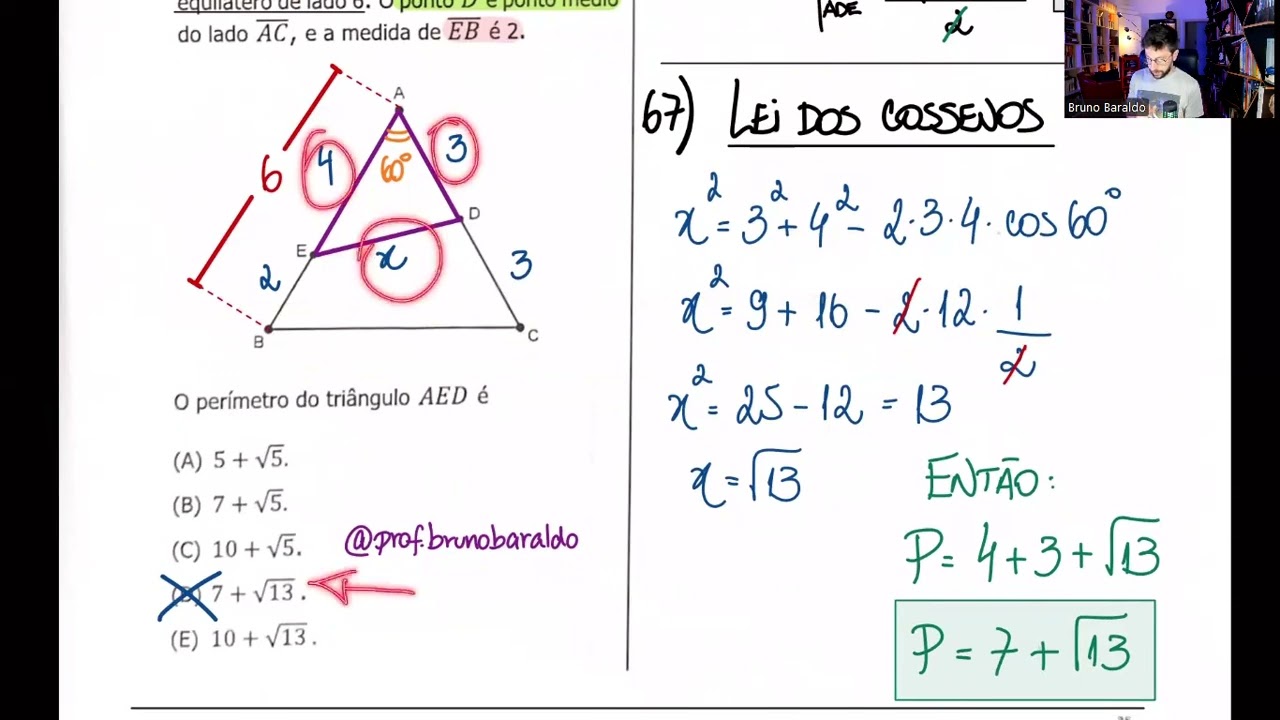 equilátero de lado 6. O ponto D é ponto médio
do lado AC, e a medida de EB é 2.
A
6
4
3
60°
D
E
x
2
3
B
C
O perímetro do triângulo AED é
(A) 5 + √5.
(B) 7 + √5.
(C) 10 + √5.
@prof.brunobaraldo
7 + √13.
(E) 10 + √13.
ADE
2
67) LEI DOS COSSENOS
x² = 3² + 4² - 2·3·4·cos 60°
x² = 9 + 16 - 2·12·1/2
x² = 25 - 12 = 13
x = √13
ENTÃO:
P = 4 + 3 + √13
P = 7 + √13
Bruno Baraldo